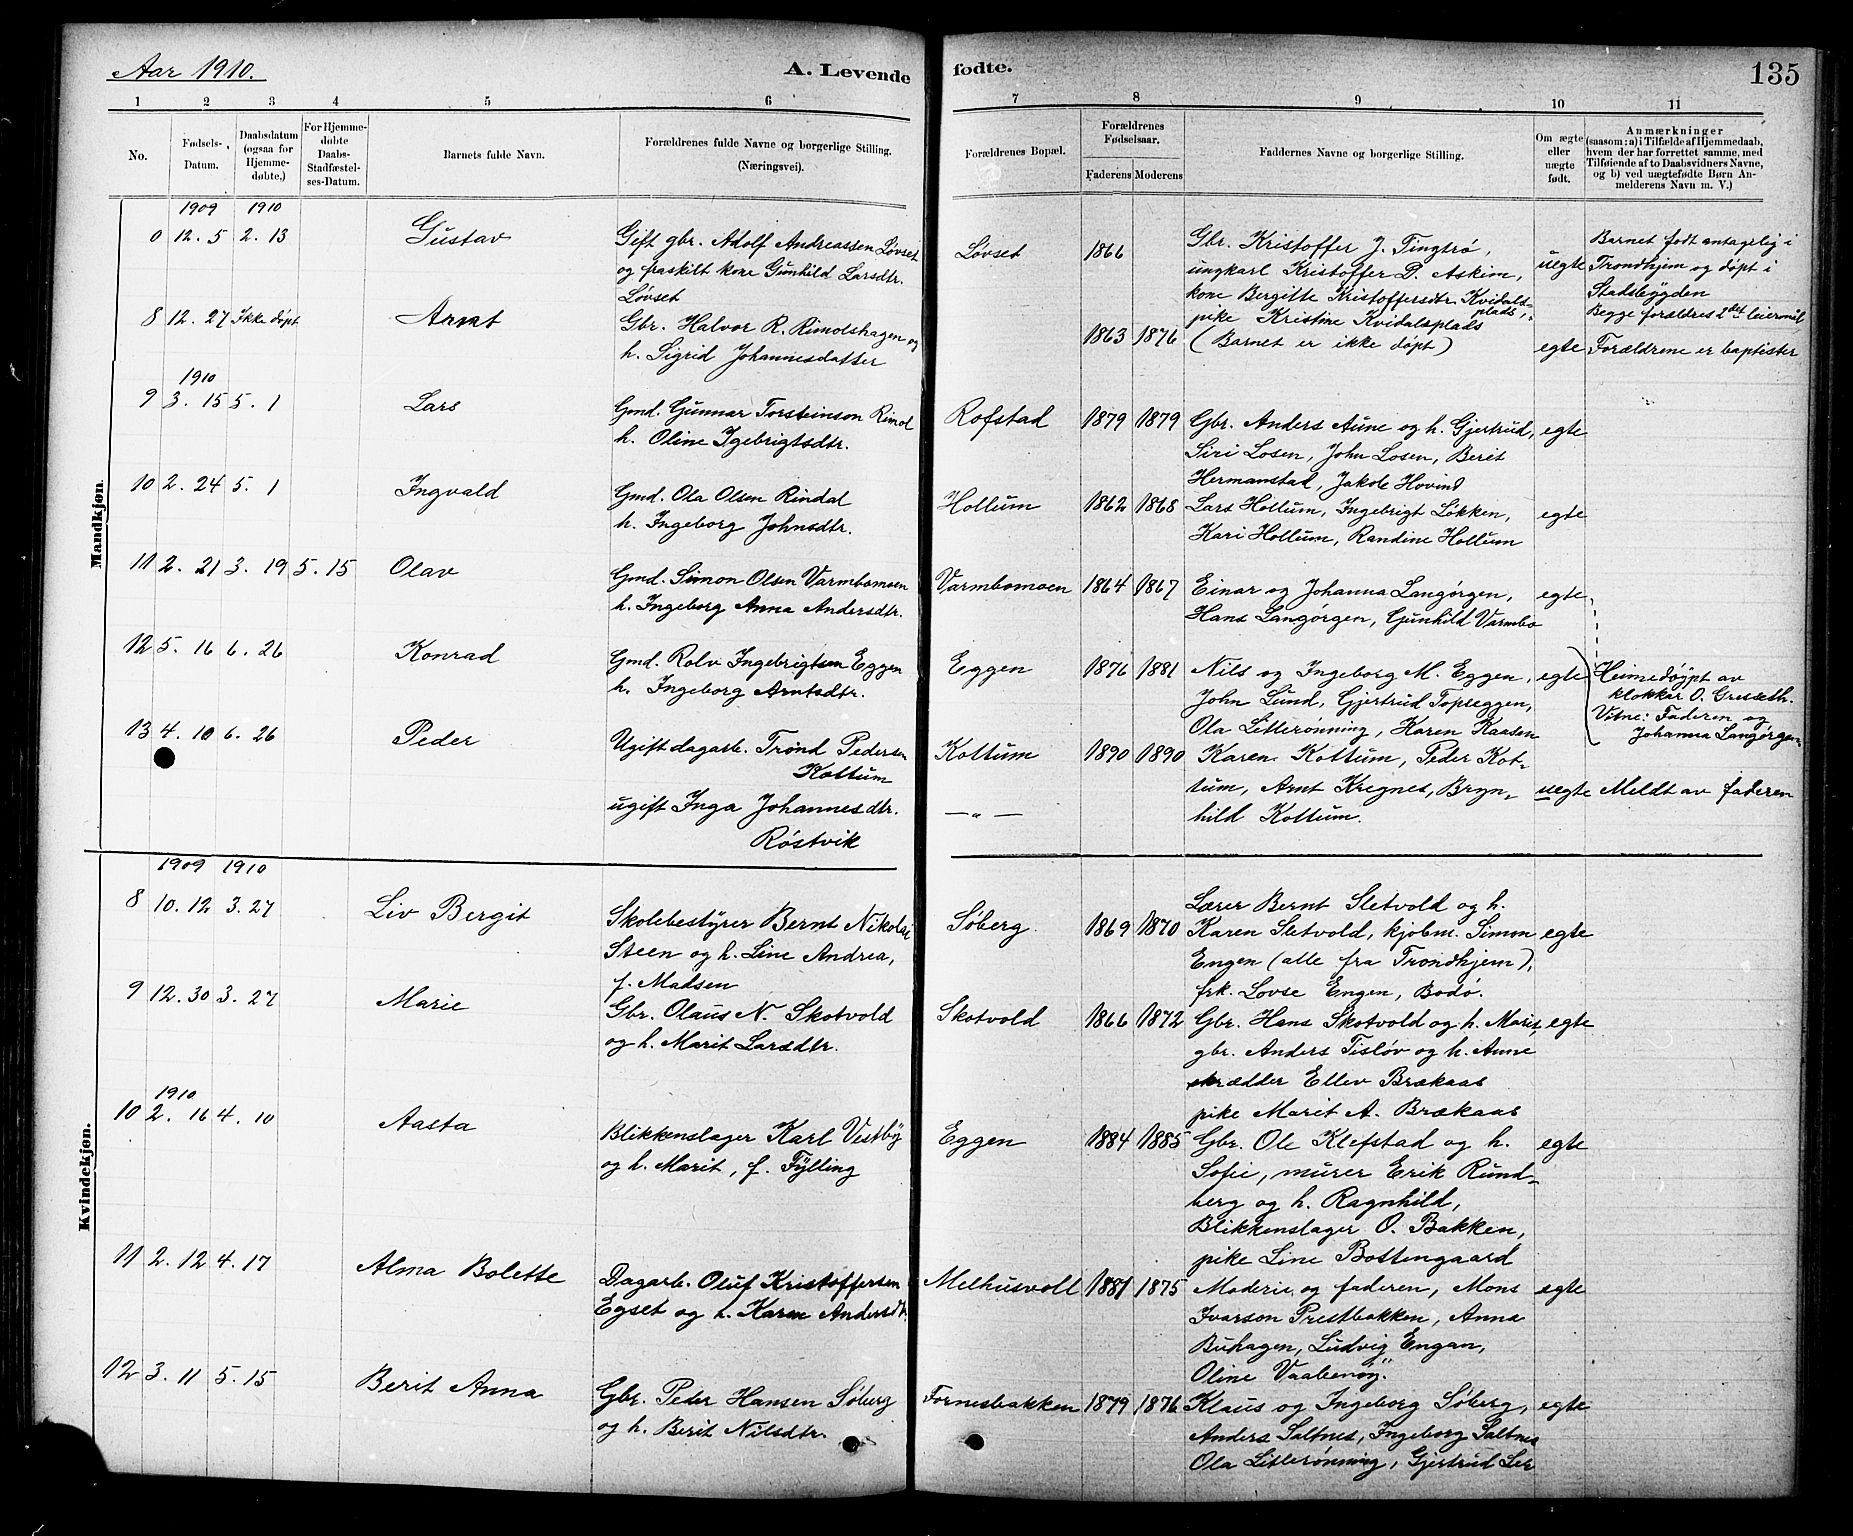 Aar 1910.
A. Levende
fødte.
135
1 2 3 4 5 6 7 8 9 10 11
No.
Fødsels-
Datum.
Daabsdatum
(ogsaa for
Hjemme-
døbte.)
For Hjemme-
døbte
Daabs-
Stadfæstel-
ses-Datum.
Barnets fulde Navn.
Forældrenes fulde Navne og borgerlige Stilling.
(Næringsvei).
Forældrenes Bopæl.
Forældrenes
Fødselsaar.
Faderens Moderens
Faddernes Navne og borgerlige Stilling.
Om ægte
eller
uægte
født.
Anmærkninger
(saasom: a) i Tilfælde af Hjemmedaab,
hvem der har forrettet samme, med
Tilføiende af to Daabsvidners Navne,
og b) ved uægtefødte Børn An-
melderens Navn m. V.)
Mandkjøn.
1909 1910
0 12. 5 2. 13 Gustav
Gift gbr. Adolf Andreassen Løvset
og fraskilt kone Gunhild Larsdtr.
Løvset
Løvset 1866
Gbr. Kristoffer J. Tingtrø,
ungkarl Kristoffer P. Askim,
kone Bergitte Kristoffersdtr. Kvidals-
plads,
pike Kristine Kvidalsplads
uegte
Barnet født antagelig i
Trondhjem og døpt i
Stadsbygden
Begge forældres 2det leiermål
8 12. 27 Ikke døpt Arnt
Gbr. Halvor R. Rimolshagen og
h. Sigrid Johannesdatter
1863 1876 (Barnet er ikke døpt) egte Forældrene er baptister
1910
9 3. 15 5. 1 Lars
Gmd. Gunnar Torsteinson Rimol
h. Oline Igebrigtsdtr.
Rofstad 1879 1879
Gbr. Anders Aune og h. Gjertrud, egte
Siri Losen, John Losen, Berit
Hermanstad, Jakob Hovind
10 2. 24 5. 1 Ingvald
Gmd. Ola Olsen Rindal
h. Ingeborg Johnsdtr.
Hollum 1862 1868
Lars Hollum, Ingebrigt Løkken, egte
Kari Hollum, Randine Hollum
11 2. 21 3. 19 5. 15 Olav
Gmd. Simon Olsen Varmbomoen
h. Ingeborg Anna Andersdtr.
Varmbomoen 1864 1867
Einar og Johanna Langørgen, egte
Hans Langørgen, Gunhild Varmbo
12 5. 16 6. 26 Konrad
Gmd. Rolv Ingebrigtsen Eggen
h. Ingeborg Arntsdtr.
Eggen 1876 1881
Nils og Ingeborg M. Eggen, egte
John Lund, Gjertrud Topseggen,
Ola Litlerønning, Karen Kaasen
Heimedøypt av
klokkar O. Gresæth.
Vitne: Faderen og
Johanna Langørgen
13 4. 10 6. 26 Peder
Ugift dagarb. Trond Pedersen
Kottum
ugift Inga Johannesdtr.
Røstvik
Kottum 1890 1890
— „ —
Karen Kottum, Peder Kot-
tum, Arnt Kregnes, Bryn-
hild Kottum.
uegte Meldt av faderen
Kvindekjøn.
1909 1910
8 10. 12 3. 27 Liv Bergit
Skolebestyrer Bernt Nikolai
Steen og h. Line Andrea,
f. Madsen
Søberg 1869 1870
Lærer Bernt Sletvold og h.
Karen Sletvold, kjøbm. Simon egte
Engen (alle fra Trondhjem),
frk. Lovse Engen, Bodø.
9 12. 30 3. 27 Marie
Gbr. Olaus N. Skotvold
og h. Marit Larsdtr.
Skotvold 1866 1872
Gbr. Hans Skotvold og h. Marit, egte
gbr. Anders Tisløv og h. Anne
skrædder Ellev Brækaas
pike Marit A. Brækaas
1910
10 2. 16 4. 10 Aasta
Blikkenslager Karl Vestby
og h. Marit, f. Fylling
Eggen 1884 1885
Gbr. Ole Klefstad og h. egte
Sofie, murer Erik Rund-
berg og h. Ragnhild,
Blikkenslager O. Bakken,
pike Line Bostengaard
11 2. 12 4. 17 Alma Bolette
Dagarb. Oluf Kristoffersen
Egset og h. Karen Andersdtr.
Melhusvoll 1881 1875
Moderen og faderen, Mons egte
Ivarson Prestbakken, Anna
Buhagen, Ludvig Engan,
Oline Vaabenøy.
12 3. 11 5. 15 Berit Anna
Gbr. Peder Hansen Søberg
og h. Berit Nilsdtr.
Fornesbakken 1879 1876
Klaus og Ingeborg Søberg, egte
Anders Saltnes, Ingeborg Saltnes
Ola Litlerønning, Gjertrud Ler